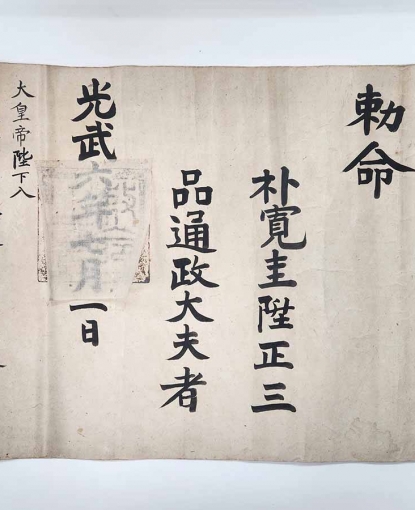 勅命
朴寬圭陞正三
品通政大夫者
光武六年七月一日
大皇帝陛下入